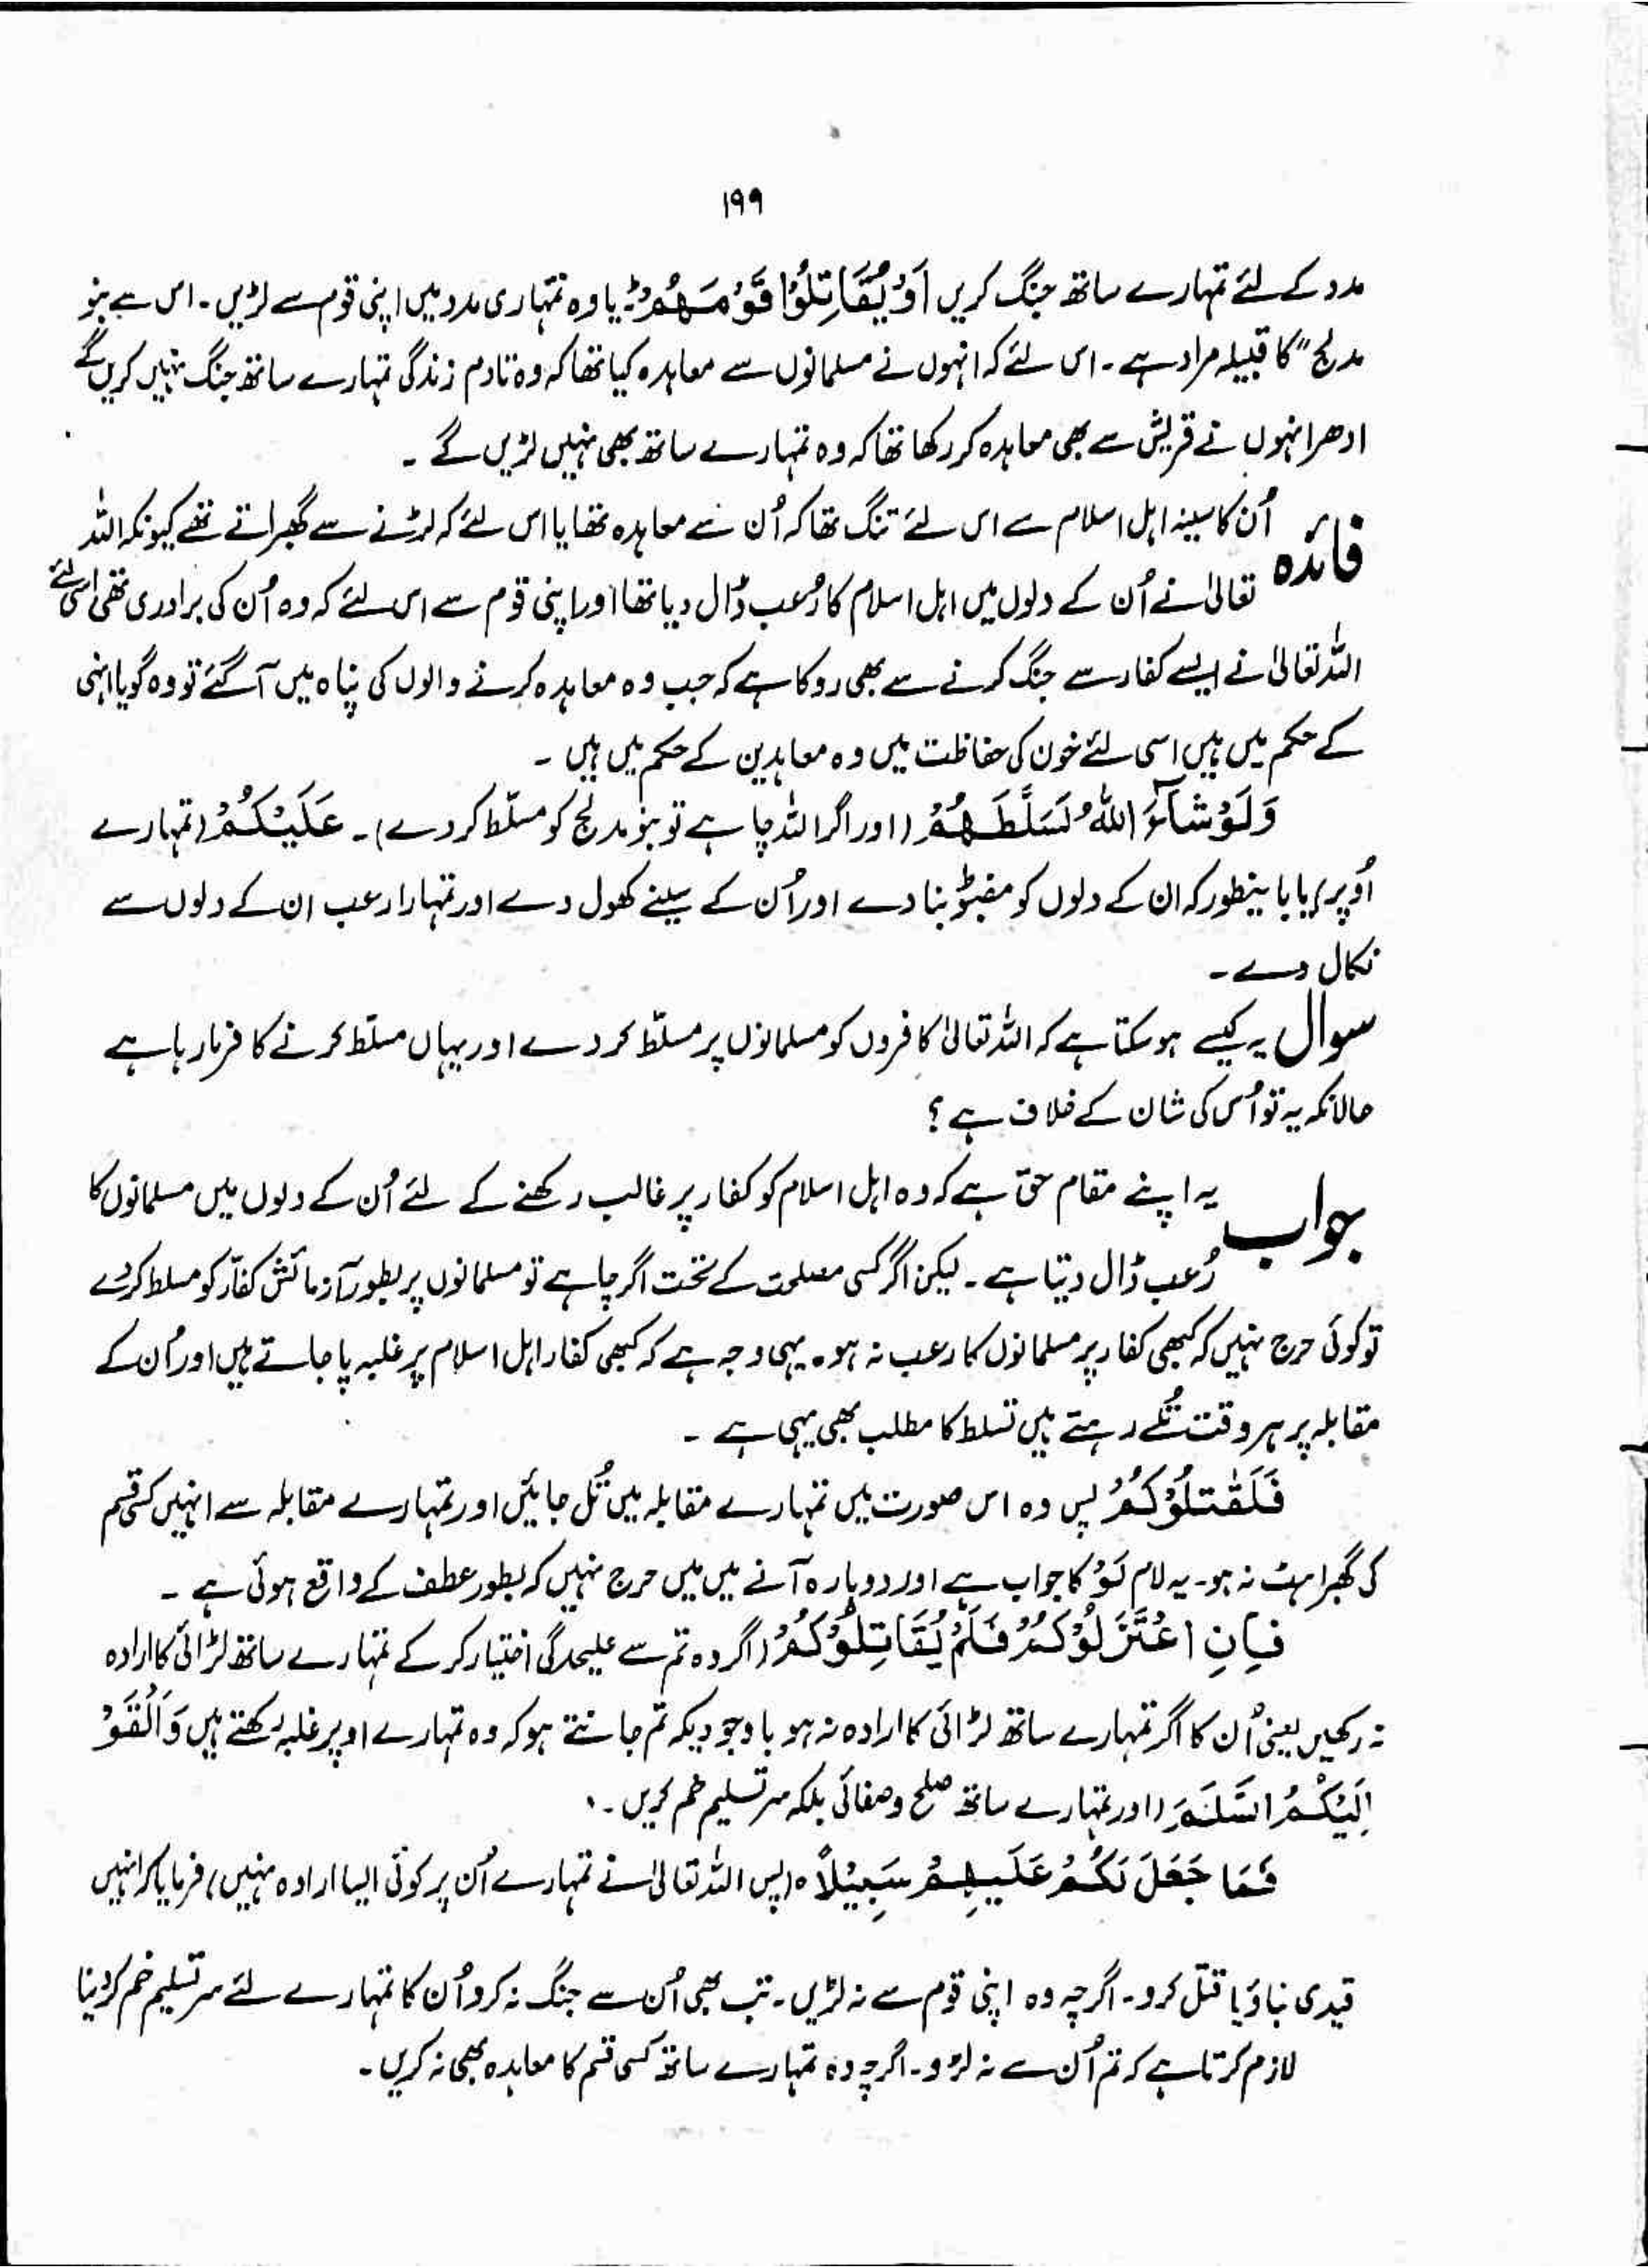 ۱۹۹
مدد کے لئے تمہارے ساتھ جنگ کریں اَوْ یُقَاتِلُوْا قَوْمَهُمْ ؕ یا وہ تمہاری مدد میں اپنی قوم سے لڑیں۔ اس سے بنو
مدلج" کا قبیلہ مراد ہے۔ اس لئے کہ انہوں نے مسلمانوں سے معاہدہ کیا تھا کہ وہ تادم زندگی تمہارے ساتھ جنگ نہیں کریں گے
ادھر انہوں نے قریش سے بھی معاہدہ کر رکھا تھا کہ وہ تمہارے ساتھ بھی نہیں لڑیں گے ۔
فائدہ اُن کا سینہ اہل اسلام سے اس لئے تنگ تھا کہ اُن سے معاہدہ تھا یا اس لئے کہ لڑنے سے گھبراتے تھے کیونکہ اللہ
تعالیٰ نے اُن کے دلوں میں اہل اسلام کا رُعب ڈال دیا تھا اور اپنی قوم سے اس لئے کہ وہ اُن کی برادری تھی اسی لئے
اللہ تعالیٰ نے ایسے کفار سے جنگ کرنے سے بھی روکا ہے کہ جب وہ معاہدہ کرنے والوں کی پناہ میں آ گئے تو وہ گویا انہی
کے حکم میں ہیں اسی لئے خون کی حفاظت میں وہ معاہدین کے حکم میں ہیں ۔
وَلَوْ شَآءَ اللّٰهُ لَسَلَّطَهُمْ (اور اگر اللہ چاہے تو بنو مدلج کو مسلّط کر دے)۔ عَلَیْکُمْ (تمہارے
اُوپر) یا بایںطور کہ ان کے دلوں کو مضبوط بنا دے اور اُن کے سینے کھول دے اور تمہارا رعب ان کے دلوں سے
نکال دے۔
سوال یہ کیسے ہو سکتا ہے کہ اللہ تعالیٰ کافروں کو مسلمانوں پر مسلّط کر دے اور یہاں مسلّط کرنے کا فرما رہا ہے
حالانکہ یہ تو اُس کی شان کے خلاف ہے ؟
جواب یہ اپنے مقام حق ہے کہ وہ اہل اسلام کو کفار پر غالب رکھنے کے لئے اُن کے دلوں میں مسلمانوں کا
رُعب ڈال دیتا ہے۔ لیکن اگر کسی مصلحت کے تحت اگر چاہے تو مسلمانوں پر بطور آزمائش کفار کو مسلط کر دے
تو کوئی حرج نہیں کہ کبھی کفار پر مسلمانوں کا رعب نہ ہو۔ یہی وجہ ہے کہ کبھی کفار اہل اسلام پر غلبہ پا جاتے ہیں اور اُن کے
مقابلہ پر ہر وقت تُلے رہتے ہیں تسلط کا مطلب بھی یہی ہے ۔
فَلَقٰتَلُوْکُمْ پس وہ اس صورت میں تمہارے مقابلہ میں تُل جائیں اور تمہارے مقابلہ سے انہیں کسی قسم
کی گھبراہٹ نہ ہو۔ یہ لام لَوْ کا جواب ہے اور دوبارہ آنے میں میں حرج نہیں کہ بطور عطف کے واقع ہوئی ہے ۔
فَاِنِ اعْتَزَلُوْکُمْ فَلَمْ یُقَاتِلُوْکُمْ (اگر وہ تم سے علیحدگی اختیار کر کے تمہارے ساتھ لڑائی کا ارادہ
نہ رکھیں یعنی اُن کا اگر تمہارے ساتھ لڑائی کا ارادہ نہ ہو باوجودیکہ تم جانتے ہو کہ وہ تمہارے اوپر غلبہ رکھتے ہیں وَاَلْقَوْ
اِلَیْکُمُ السَّلَمَ (اور تمہارے ساتھ صلح و صفائی بلکہ سر تسلیم خم کریں۔
فَمَا جَعَلَ لَکُمْ عَلَیْهِمْ سَبِیْلًا ہ (پس اللہ تعالیٰ نے تمہارے اُن پر کوئی ایسا ارادہ نہیں) فرمایا کہ انہیں
قیدی بناؤ یا قتل کرو۔ اگرچہ وہ اپنی قوم سے نہ لڑیں۔ تب بھی اُن سے جنگ نہ کرو اُن کا تمہارے لئے سر تسلیم خم کر دینا
لازم کرتا ہے کہ تم اُن سے نہ لڑو۔ اگرچہ وہ تمہارے ساتھ کسی قسم کا معاہدہ بھی نہ کریں۔